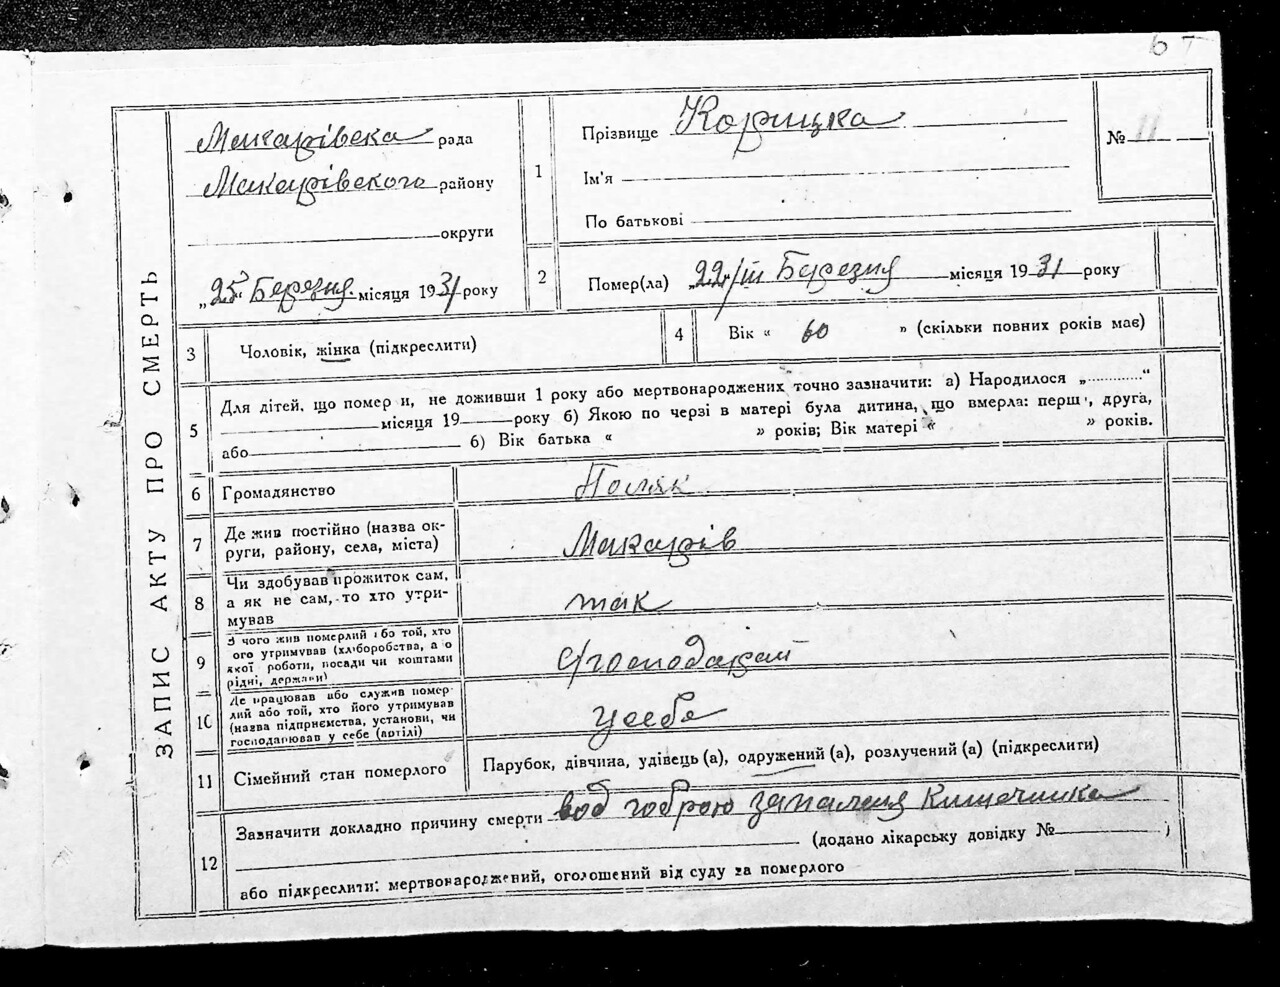 6 Т
ЗАПИС АКТУ ПРО СМЕРТЬ
Макарівска рада
Макарівского району
округи
„25“ Березня місяця 1931 року
1 Прізвище Корицка
Ім'я
По батькові
№ 11
2 Помер(ла) „22/III Березня місяця 1931 року
3 Чоловік, жінка (підкреслити)
4 Вік « 60 » (скільки повних років має)
5 Для дітей, що помер и, не доживши 1 року або мертвонароджених точно зазначити: а) Народилося „ “
місяця 19 року б) Якою по черзі в матері була дитина, що вмерла: перш', друга,
або б) Вік батька « » років; Вік матері « » років.
6 Громадянство Поляк
7 Де жив постійно (назва ок-
руги, району, села, міста) Макарів
8 Чи здобував прожиток сам,
а як не сам, то хто утри-
мував так
9 З чого жив померлий або той, хто
ого утримував (хліборобства, а о
якої роботи, посади чи коштами
рідні, держави)
10 Де працював або служив помер-
лий або той, хто його утримував
(назва підприємства, установи, чи
господарював у себе (артілі) у себе
11 Сімейний стан померлого Парубок, дівчина, удівець (а), одружений (а), розлучений (а) (підкреслити)
12 Зазначити докладно причину смерти запалення Кишечника
(додано лікарську довідку № )
або підкреслити: мертвонароджений, оголошений від суду за померлого